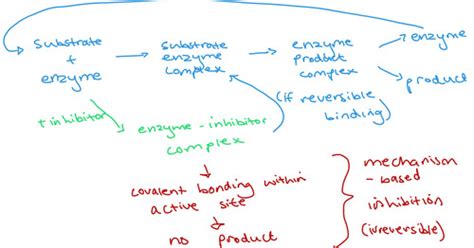 substrate
+
enzyme
substrate
enzyme
complex
enzyme
product
complex
enzyme
product
(if reversible
binding)
+ inhibitor
enzyme - inhibitor
complex
covalent bonding within
active site
no product
mechanism
- based
inhibition
(irreversible)